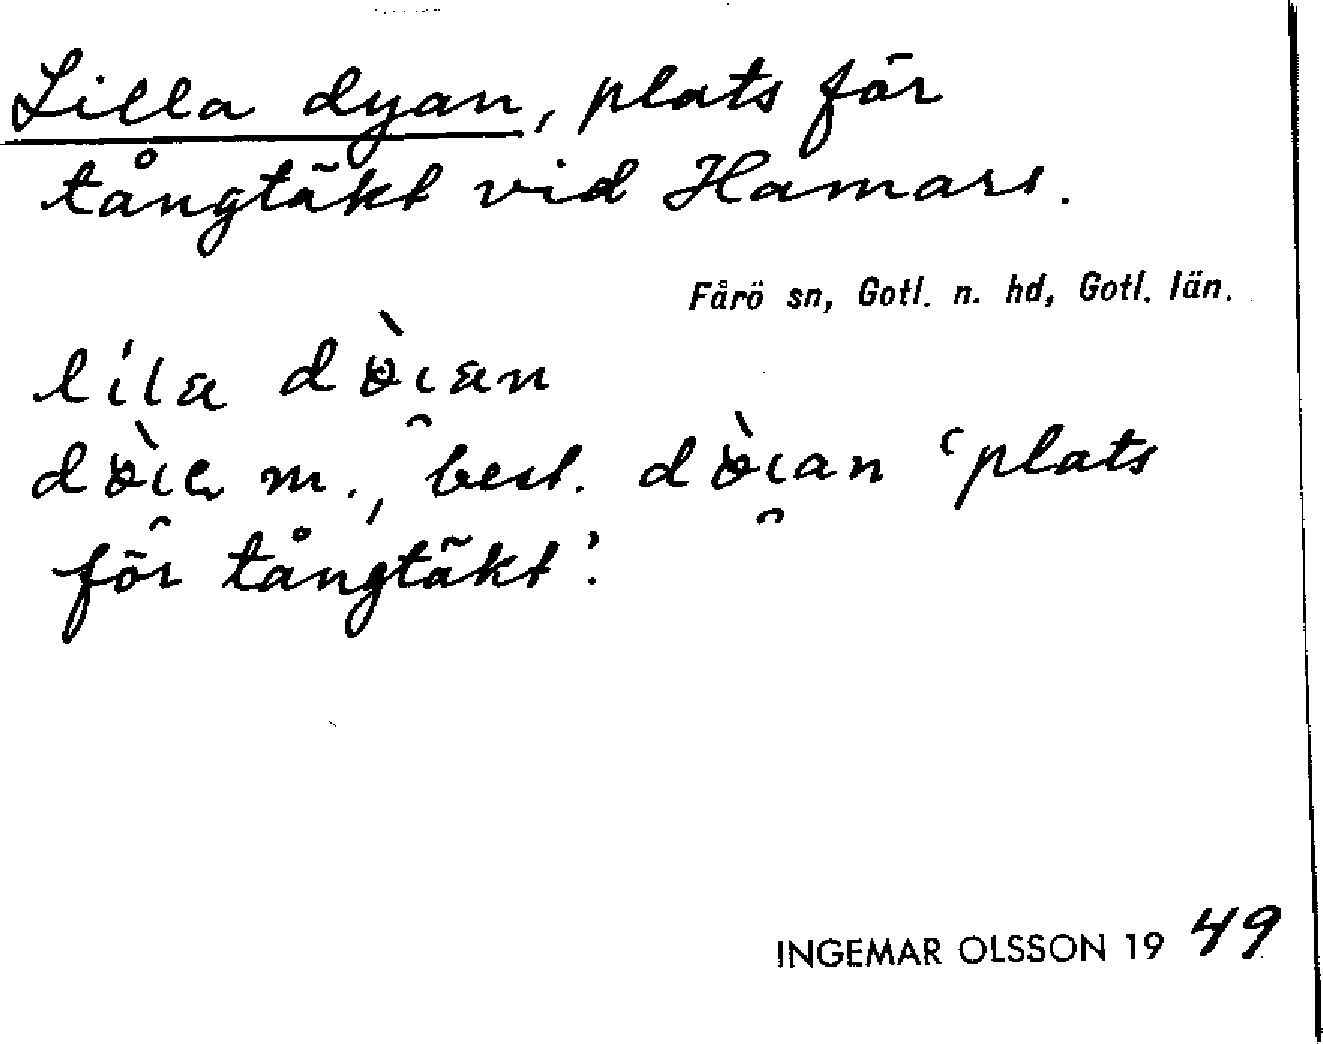 Lilla dyan, plats för
tångtäkt vid Hamars.
Fårö sn, Gotl. n. hd, Gotl. län.
lila
m., best. 'plats
för tångtäkt'.
INGEMAR OLSSON 19 49